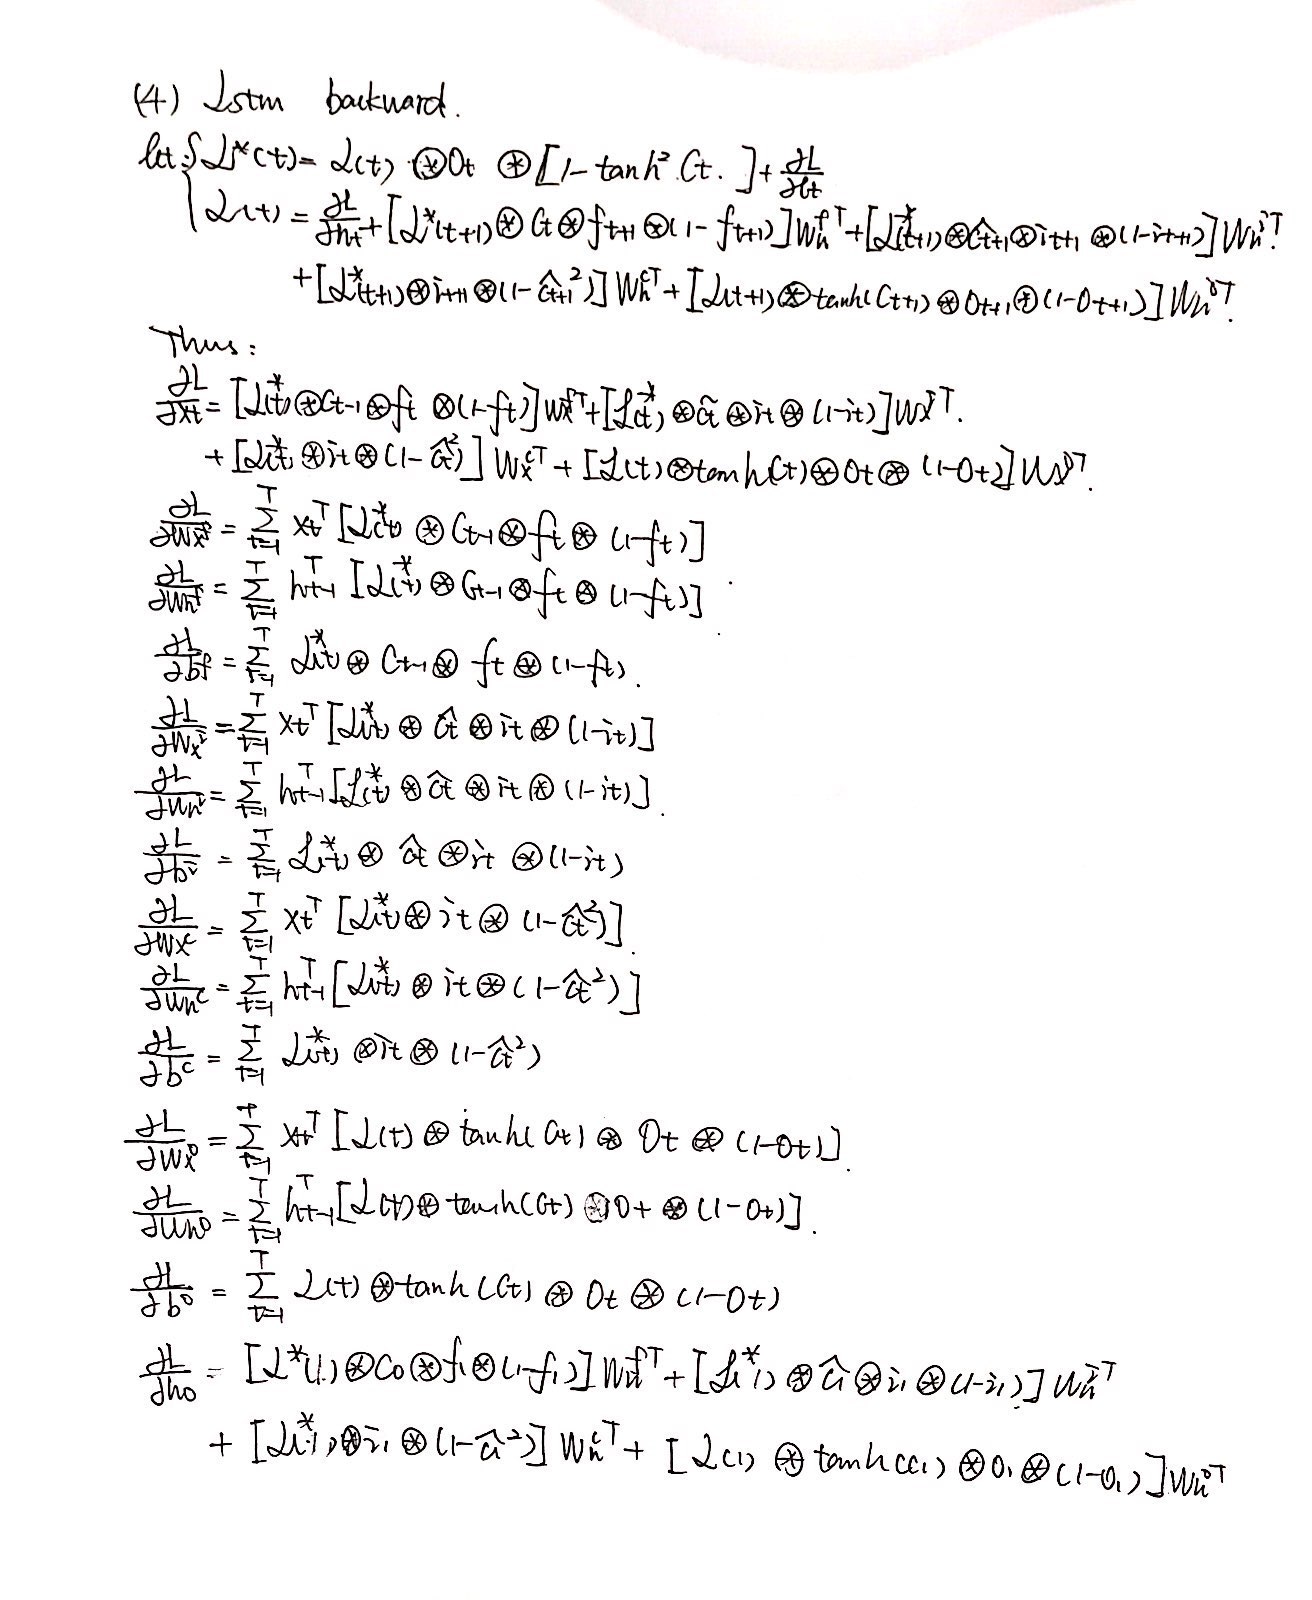 (4) Lstm backward.
let: { L*(t) = L(t) ⊛ Ot ⊛ [1 - tanh² Ct.] + ∂L/∂Ct
L(t) = ∂L/∂ht + [L*(t+1) ⊛ Ct ⊛ ft+1 ⊛ (1 - ft+1)] Wh^fT + [L*(t+1) ⊛ Ĉt+1 ⊛ it+1 ⊛ (1-it+1)] Wh^iT.
+ [L*(t+1) ⊛ it+1 ⊛ (1 - Ĉt+1²)] Wh^cT + [L(t+1) ⊛ tanh(Ct+1) ⊛ Ot+1 ⊛ (1-Ot+1)] Wh^oT.
Thus:
∂L/∂xt = [L*(t) ⊛ Ct-1 ⊛ ft ⊛ (1-ft)] Wx^fT + [L*(t) ⊛ Ĉt ⊛ it ⊛ (1-it)] Wx^iT.
+ [L*(t) ⊛ it ⊛ (1-Ĉt²)] Wx^cT + [L(t) ⊛ tanh(Ct) ⊛ Ot ⊛ (1-Ot)] Wx^oT.
∂L/∂Wx^f = Σ_{t=1}^T xt^T [L*(t) ⊛ Ct-1 ⊛ ft ⊛ (1-ft)]
∂L/∂Wh^f = Σ_{t=1}^T ht-1^T [L*(t) ⊛ Ct-1 ⊛ ft ⊛ (1-ft)]
∂L/∂b^f = Σ_{t=1}^T L*(t) ⊛ Ct-1 ⊛ ft ⊛ (1-ft).
∂L/∂Wx^i = Σ_{t=1}^T xt^T [L*(t) ⊛ Ĉt ⊛ it ⊛ (1-it)]
∂L/∂Wh^i = Σ_{t=1}^T ht-1^T [L*(t) ⊛ Ĉt ⊛ it ⊛ (1-it)].
∂L/∂b^i = Σ_{t=1}^T L*(t) ⊛ Ĉt ⊛ it ⊛ (1-it)
∂L/∂Wx^c = Σ_{t=1}^T xt^T [L*(t) ⊛ it ⊛ (1-Ĉt²)].
∂L/∂Wh^c = Σ_{t=1}^T ht-1^T [L*(t) ⊛ it ⊛ (1-Ĉt²)]
∂L/∂b^c = Σ_{t=1}^T L*(t) ⊛ it ⊛ (1-Ĉt²)
∂L/∂Wx^o = Σ_{t=1}^T xt^T [L(t) ⊛ tanh(Ct) ⊛ Ot ⊛ (1-Ot)].
∂L/∂Wh^o = Σ_{t=1}^T ht-1^T [L(t) ⊛ tanh(Ct) ⊛ Ot ⊛ (1-Ot)].
∂L/∂b^o = Σ_{t=1}^T L(t) ⊛ tanh(Ct) ⊛ Ot ⊛ (1-Ot)
∂L/∂h0 = [L*(1) ⊛ C0 ⊛ f1 ⊛ (1-f1)] Wh^fT + [L*(1) ⊛ Ĉ1 ⊛ i1 ⊛ (1-i1)] Wh^iT
+ [L*(1) ⊛ i1 ⊛ (1-Ĉ1²)] Wh^cT + [L(1) ⊛ tanh(C1) ⊛ O1 ⊛ (1-O1)] Wh^oT